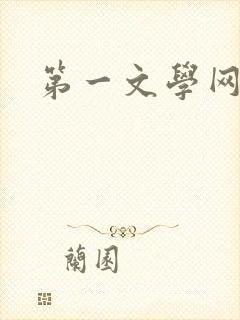 第一文學网
蘭園